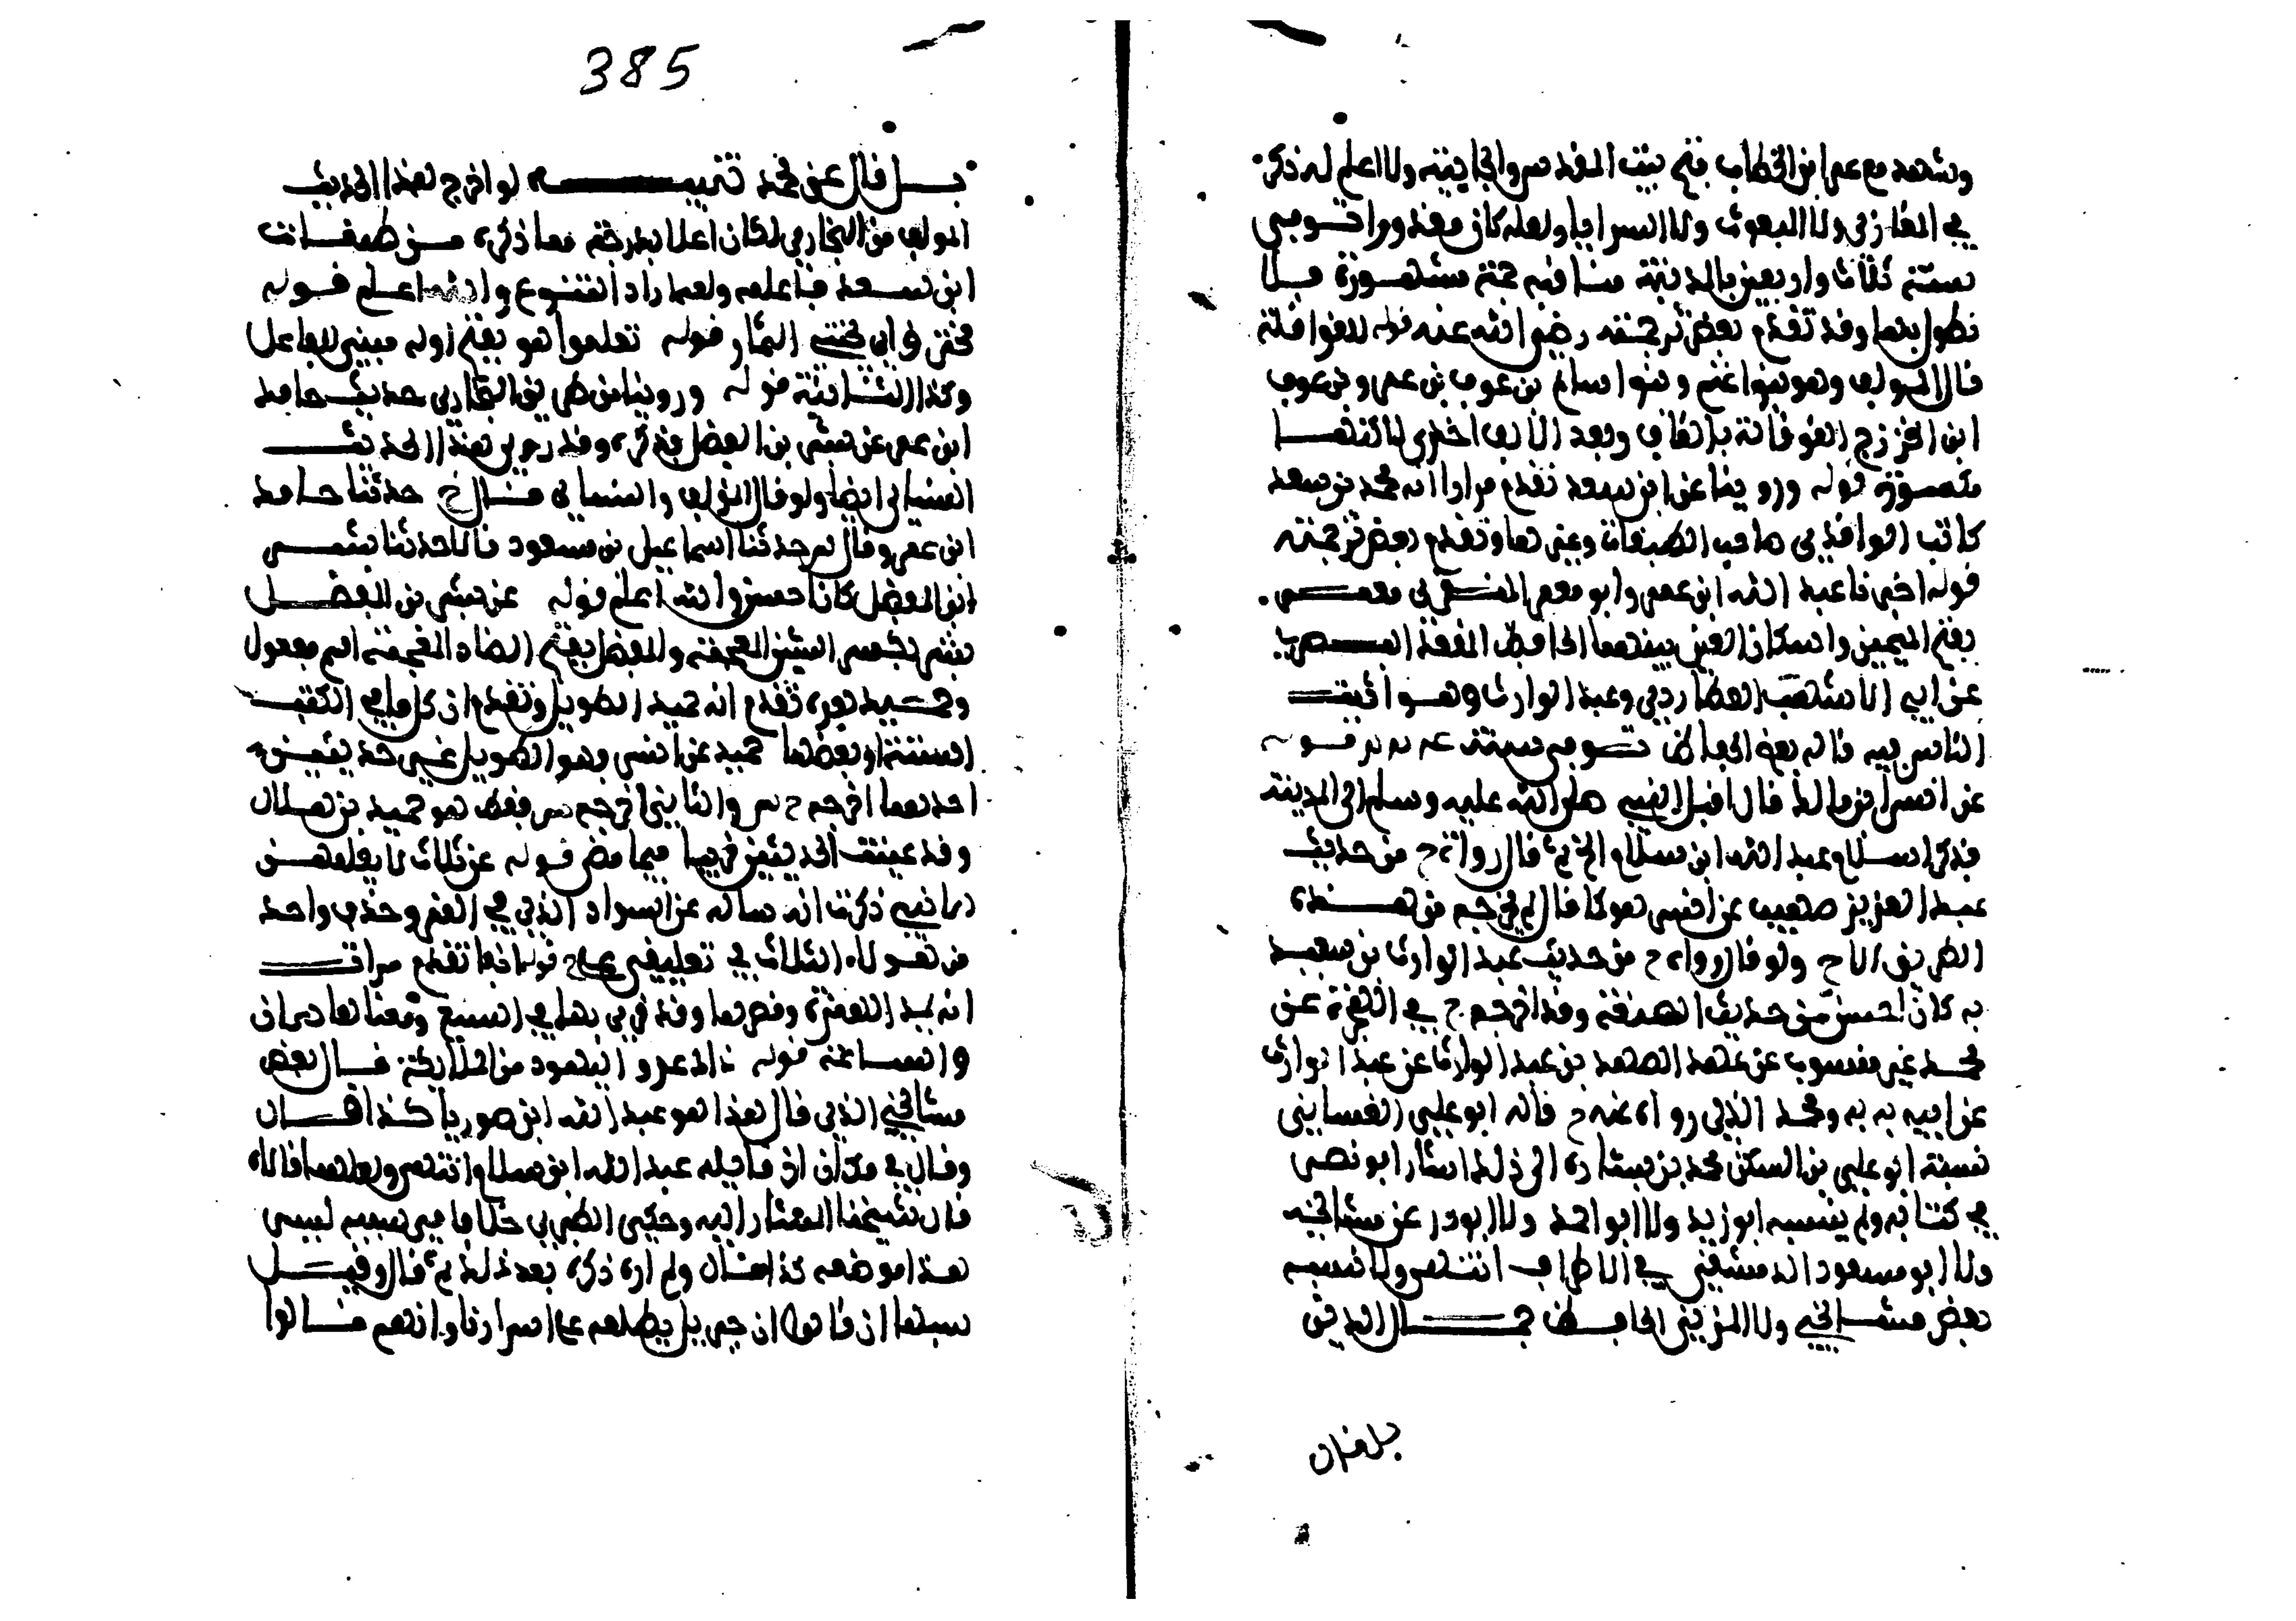 وشهد مع عمر ابن الخطاب فتح بيت المقدس والجابية ولا اعلم له ذكر
في المغازي ولا البعوث ولا السرايا ولعله كان معذورا توفي
سنة ثلاث واربعين بالمدينة مناقبه جمة مشهورة فلا
نطول بها وقد تقدم بعض ترجمته رضي الله عنه قوله للقواقلة
قال المولف وهو بنوا غنم وبنوا سالم بن عوف بن عمرو بن عوف
ابن الخزرج القوقلة بالقاف وبعد الالف اخرى
قوله وروينا عن ابن سعد تقدم مرارا انه محمد بن سعد
كاتب الواقدي صاحب الطبقات وغيرها وتقدم بعض ترجمته
قوله اخبرنا عبد الله ابن عمرو ابو معمر المنقري معمر
بفتح الميمين واسكان العين بينهما الحافظ المقعد البصري
عن ابي الاشهب العطاردي وعبد الوارث وهو اثبت
الناس فيه قاله بعض الحفاظ توفي سنة قوله
عن انس ابن مالك قال اقبل النبي صلى الله عليه وسلم الى المدينة
فذكر اسلام عبد الله ابن سلام الخ ثم قال رواه خ من حديث
عبد العزيز صهيب عن انس هو كما قال لم يخرجه من هذه
الطريق الا خ ولو قال رواه خ من حديث عبد الوارث بن سعيد
به كان احسن من حديث وقد اخرجه خ في الهجرة عن
محمد غير منسوب عن عبد الصمد بن عبد الوارث عن عبد الوارث
عن ابيه به به ومحمد الذي رواه عنه خ قال ابو علي الغساني
نسبة ابو علي بن السكن محمد بن بشار والى ذلك اشار ابو نصر
في كتابه ولم ينسبه ابو زيد ولا ابو احمد ولا ابو ذر عن مشايخه
ولا ابو مسعود الدمشقي في الاطراف انتهى ولا نسبه
بعض مشايخي ولا المزي الحافظ جمال الدين
بل قال
385
بل قال عن محمد تنبيه لو اخرج هذا الحديث
المولف من البخاري لكان اعلا بدرجة مما ذكره من طبقات
ابن سعد فاعلمه ولعله اراد التنوع والله اعلم قوله
النهار قوله تعلموا هو بفتح اوله مبني للفاعل
وكذا الثانية قوله وروينا من طريق البخاري حديث حامد
ابن عمر عن بشر بن المفضل فذكره وقد روى هذا الحديث
النسائي ايضا ولو قال المولف والنسائي قال خ حدثنا حامد
ابن عمر وقال س حدثنا اسماعيل بن مسعود قالا حدثنا بشر
ابن المفضل كان احسن والله اعلم قوله عن بشر بن المفضل
بشر بكسر الشين المعجمة والمفضل بفتح الضاد المعجمة اسم مفعول
وحميد بعده تقدم انه حميد الطويل وتقدم ان كل ما في الكتب
الستة او بعضها حميد عن انس وهو الطويل غير حديثين
احدهما اخرجه خ س والثاني اخرجه س فقط هو حميد بن هلال
وقد عينت الحديثين قريبا فيما مضى قوله عن ثلاث لا يعلمهن
الا نبي ذكرت انه ساله عن السواد الذي في القمر وحذف واحد
من هولاء الثلاث في تعليقي على خ قوله انفا تقدم مرات
انه بمد الهمزة وقصرها وقد قري بهما في السبع ومعناها
والساعة قوله ذاك عدو اليهود من الملايكة قال بعض
مشايخي الذي قال هذا هو عبد الله ابن صوريا كذا قال
وقال في مكان ان قايله عبد الله ابن سلام انتهى ولعلهما قالاه
قال شيخنا المشار اليه وحكى الطبري خلافا في سببه ليس
هذا موضعه كذا قال ولم اره ذكره بعد ذلك ثم قال وقيل
سببها ان قالوا ان جبريل يطلعه على اسرارنا وانهم قالوا